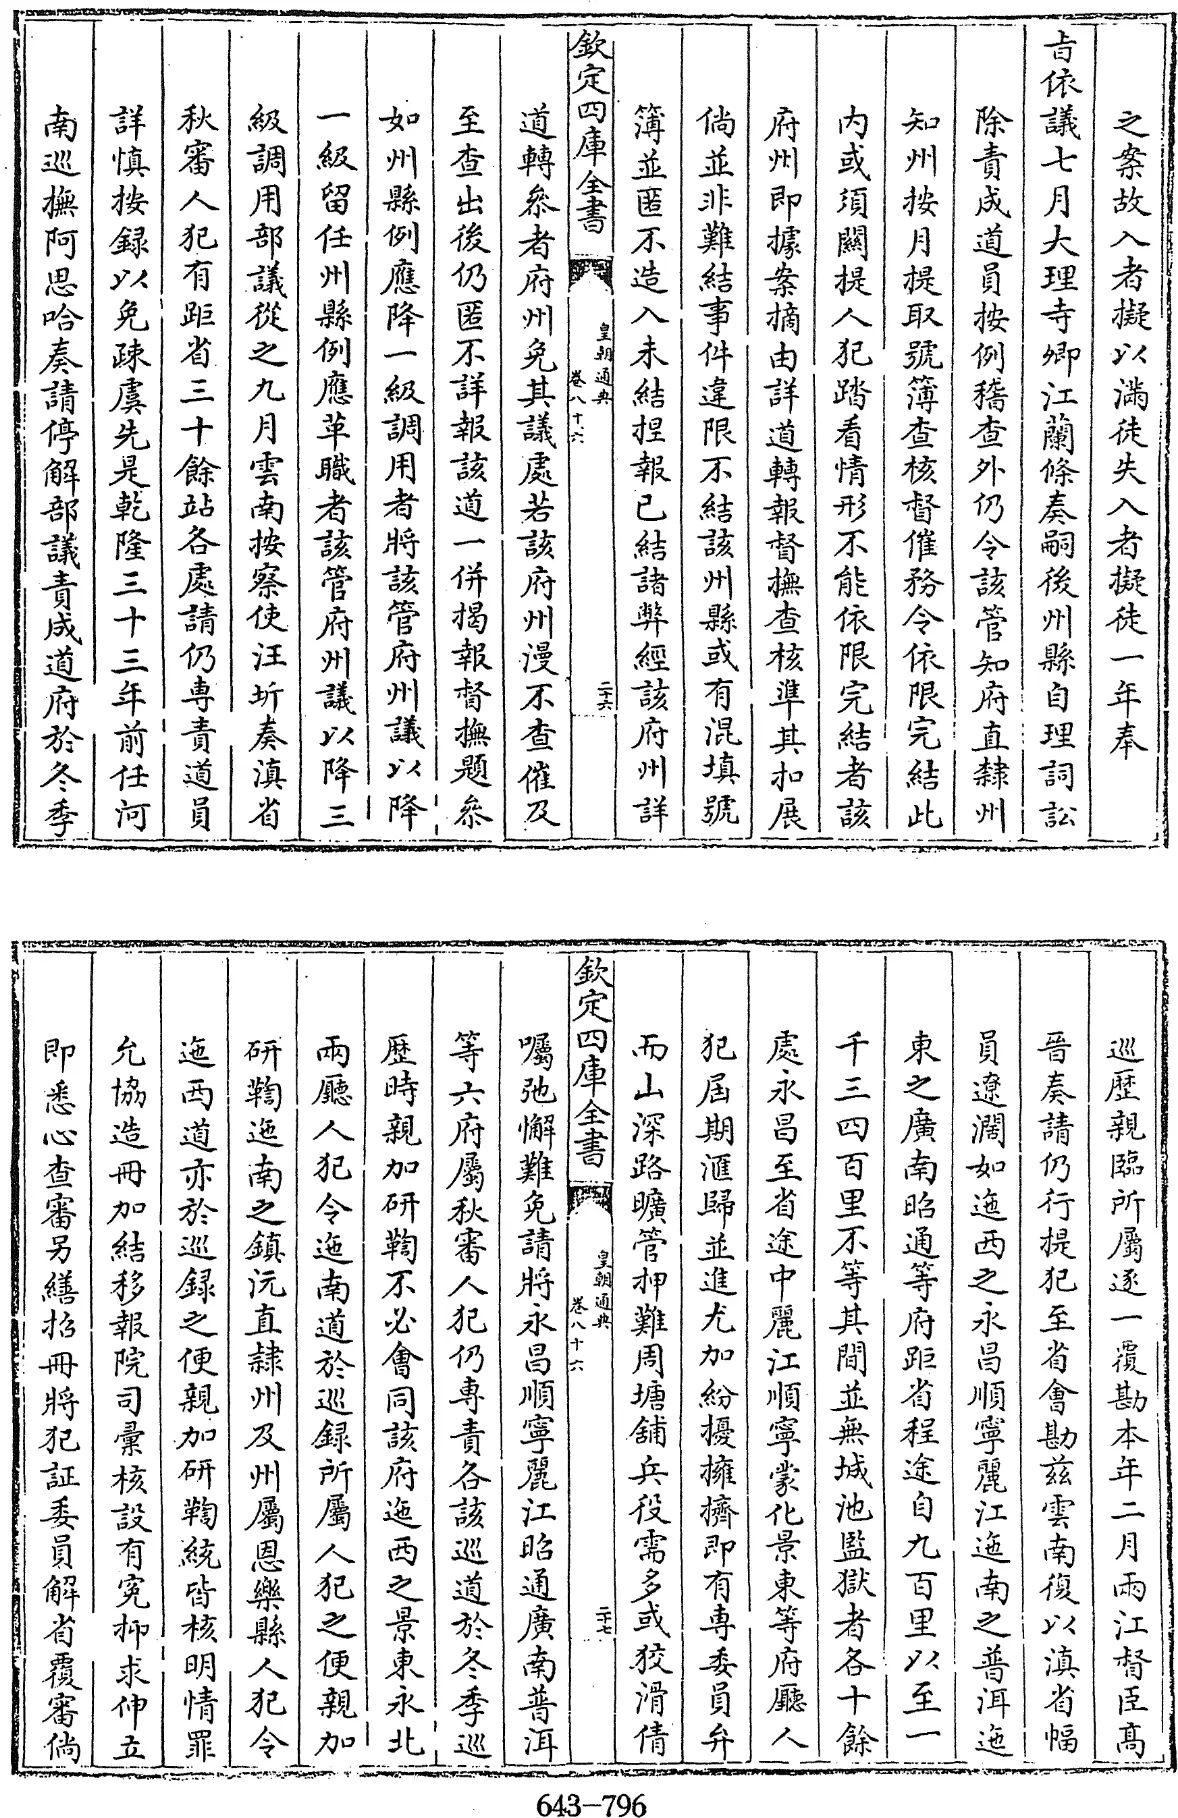 之案故入者擬以滿徒失入者擬徒一年奉
旨依議七月大理寺卿江蘭條奏嗣後州縣自理詞訟
除責成道員按例稽查外仍令該管知府直隸州
知州按月提取號簿查核督催務令依限完結此
內或須關提人犯踏看情形不能依限完結者該
府州即據案摘由詳道轉報督撫查核準其扣展
倘並非難結事件違限不結該州縣或有混填號
簿並匿不造入未結捏報已結諸弊經該府州詳
欽定四庫全書
皇朝通典
卷八十六
二十六
道轉叅者府州免其議處若該府州漫不查催及
至查出後仍匿不詳報該道一併揭報督撫題叅
如州縣例應降一級調用者將該管府州議以降
一級留任州縣例應革職者該管府州議以降三
級調用部議從之九月雲南按察使汪圻奏滇省
秋審人犯有距省三十餘站各處請仍專責道員
詳慎按録以免疎虞先是乾隆三十三年前任河
南巡撫阿思哈奏請停解部議責成道府於冬季
巡歷親臨所屬逐一覆勘本年二月兩江督臣高
晉奏請仍行提犯至省會勘茲雲南復以滇省幅
員遼濶如迤西之永昌順寧麗江迤南之普洱迤
東之廣南昭通等府距省程途自九百里以至一
千三四百里不等其間並無城池監獄者各十餘
處永昌至省途中麗江順寧蒙化景東等府廳人
犯屆期滙歸並進尤加紛擾擁擠即有專委員弁
而山深路曠管押難周塘舖兵役需多或狡滑倩
欽定四庫全書
皇朝通典
卷八十六
二十七
囑弛懈難免請將永昌順寧麗江昭通廣南普洱
等六府屬秋審人犯仍專責各該巡道於冬季巡
歷時親加研鞫不必會同該府迤西之景東永北
兩廳人犯令迤南道於巡録所屬人犯之便親加
研鞫迤南之鎮沅直隸州及州屬恩樂縣人犯令
迤西道亦於巡録之便親加研鞫統皆核明情罪
允協造冊加結移報院司彙核設有寃抑求伸立
即悉心查審另繕招冊將犯証委員解省覆審倘
643-796